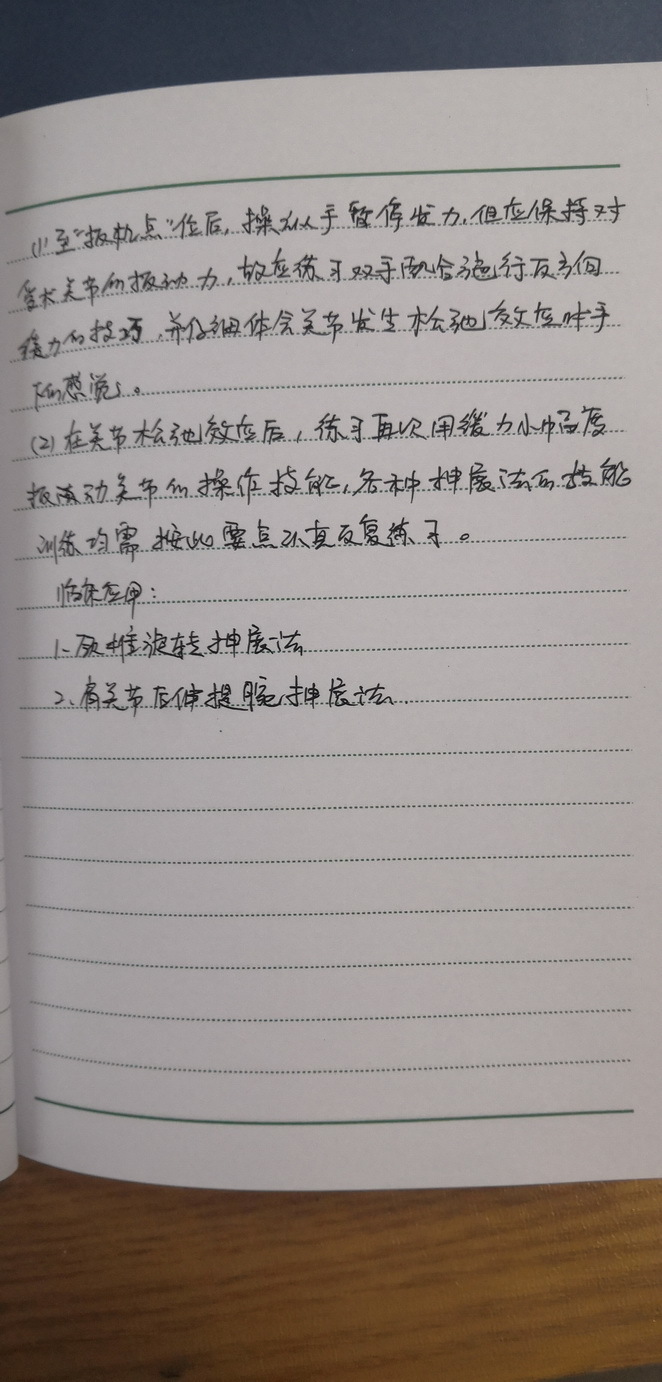 (1)至“扳机点”位后,操纵手暂停发力,但应保持对
受术关节的扳动力,故应练习双手配合施行反方向
缓力的技巧,并仔细体会关节发生松弛效应时手
下的感觉。
(2)在关节松弛效应后,练习再次用缓力小幅度
扳动关节的操作技能,各种抻展法的技能
训练均需按此要点认真反复练习。
临床应用:
1.颈椎旋转抻展法
2.肩关节后伸提腕抻展法.